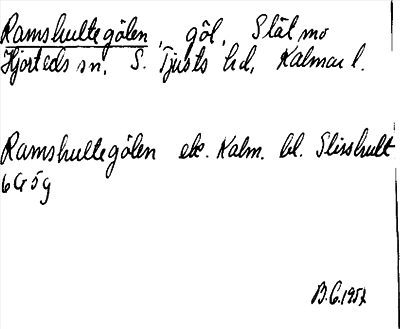 Ramshultegölen, göl, Slätmo
Hjorteds sn, S. Tjusts hd, Kalmar l.
Ramshultegölen ek. Kalm. bl. Slisshult
6G5g
B.G. 1957